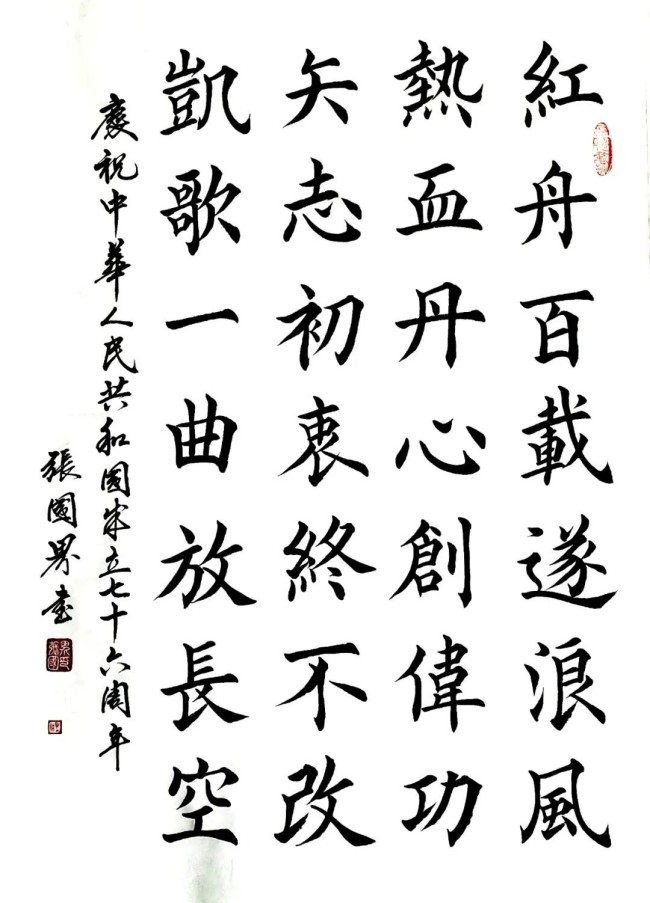 紅舟百載遂浪風
熱血丹心創偉功
矢志初衷終不改
凱歌一曲放長空
慶祝中華人民共和國成立七十六周年
張國界書